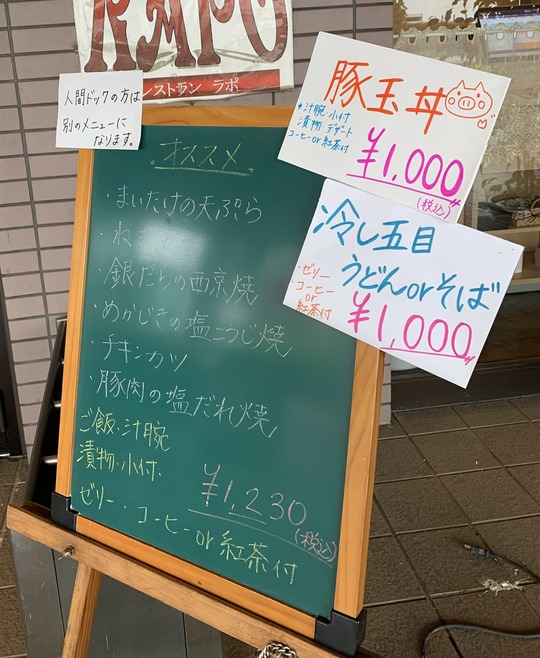 RAPO
レストラン ラポ
人間ドックの方は
別のメニューに
なります。
オススメ
・まいたけの天ぷら
・ね
・銀だらの西京焼
・めかじきの塩こうじ焼
・チキンカツ
・豚肉の塩だれ焼
ご飯・汁椀
漬物・小付
ゼリー・コーヒーor紅茶付
¥1,230
(税込)
豚玉丼
*汁椀・小付
漬物・デザート
コーヒーor紅茶付
¥1,000
(税込)
冷し五目
うどんorそば
・ゼリー
・コーヒー
or
紅茶付
¥1,000